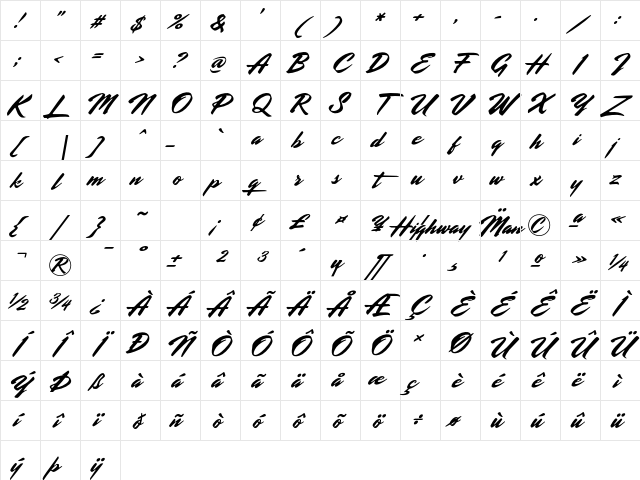 ! " # $ % & ' ( ) * + , - . / :
; < = > ? @ A B C D E F G H I J
K L M N O P Q R S T U V W X Y Z
[ | ] ^ _ ` a b c d e f g h i j
k l m n o p q r s t u v w x y z
{ / } ~ ¡ ¢ £ ¤ ¥ Highway Man © ª «
¬ ® ¯ ° ± ² ³ ´ µ ¶ · ¸ ¹ º » ¼
½ ¾ ¿ À Á Â Ã Ä Å Æ Ç È É Ê Ë Ì
Í Î Ï Ð Ñ Ò Ó Ô Õ Ö × Ø Ù Ú Û Ü
Ý Þ ß à á â ã ä å æ ç è é ê ë ì
í î ï ð ñ ò ó ô õ ö ÷ ø ù ú û ü
ý þ ÿ